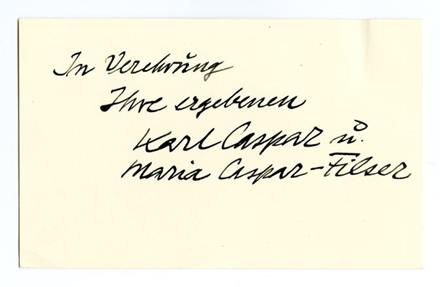 In Verehrung
Ihre ergebenen
Karl Caspar u.
Maria Caspar-Filser